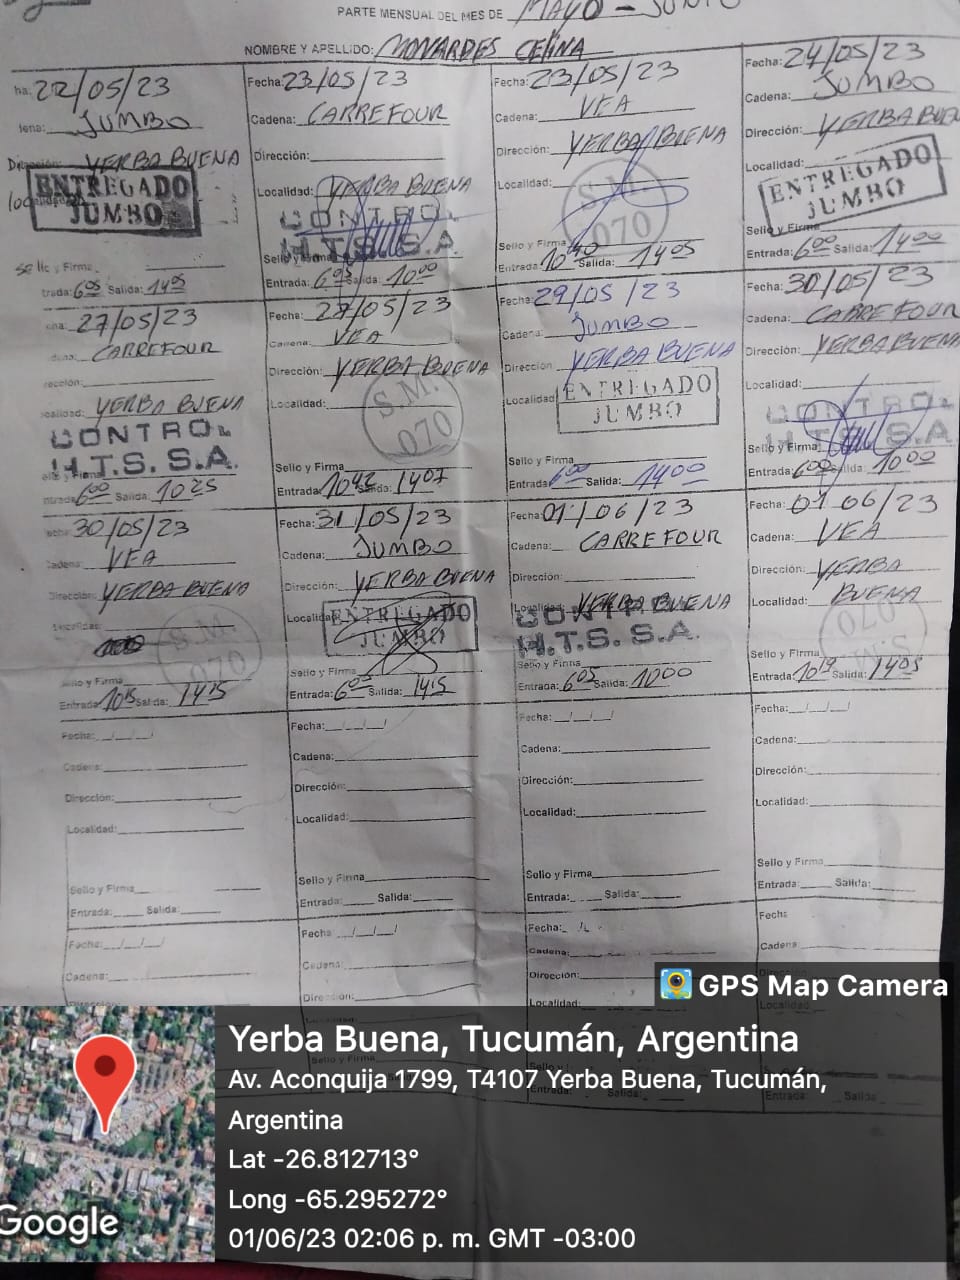 PARTE MENSUAL DEL MES DE MAYO - JUNIO
NOMBRE Y APELLIDO: MONARDES CELINA
ha: 22/05/23
dena: JUMBO
Dirección: YERBA BUENA
localidad
ENTREGADO
JUMBO
Sello y Firma
trada: 6 05 Salida: 14 05
Fecha: 23/05/23
Cadena: CARREFOUR
Dirección:
Localidad: YERBA BUENA
CONTROL
H.T.S. S.A.
Sello y Firma
Entrada: 6 05 Salida: 10 00
Fecha: 23/05/23
Cadena: VEA
Dirección: YERBA BUENA
Localidad:
S.M.
070
Sello y Firma
Entrada: 10 40 Salida: 14 05
Fecha: 24/05/23
Cadena: JUMBO
Dirección: YERBA BUENA
Localidad:
ENTREGADO
JUMBO
Sello y Firma
Entrada: 6 00 Salida: 14 00
cha: 27/05/23
dena: CARREFOUR
irección:
ocalidad: YERBA BUENA
CONTROL
H.T.S. S.A.
ello y Firma
ntrada: 6 00 Salida: 10 25
Fecha: 27/05/23
Cadena: VEA
Dirección: YERBA BUENA
Localidad:
S.M.
070
Sello y Firma
Entrada: 10 42 Salida: 14 07
Fecha: 29/05/23
Cadena: JUMBO
Dirección YERBA BUENA
Localidad
ENTREGADO
JUMBO
Sello y Firma
Entrada: 6 00 Salida: 14 00
Fecha: 30/05/23
Cadena: CARREFOUR
Dirección: YERBA BUENA
Localidad:
CONTROL
H.T.S. S.A.
Sello y Firma
Entrada: 6 00 Salida: 10 00
echa: 30/05/23
Cadena: VEA
Dirección: YERBA BUENA
S.M.
070
Sello y Firma
Entrada: 10 15 Salida: 14 15
Fecha: 31/05/23
Cadena: JUMBO
Dirección: YERBA BUENA
Localidad
ENTREGADO
JUMBO
Sello y Firma
Entrada: 6 05 Salida: 14 15
Fecha: 01/06/23
Cadena: CARREFOUR
Dirección:
Localidad: YERBA BUENA
CONTROL
H.T.S. S.A.
Sello y Firma
Entrada: 6 05 Salida: 10 00
Fecha: 01/06/23
Cadena: VEA
Dirección: YERBA
Localidad: BUENA
S.M.
070
Sello y Firma
Entrada: 10 19 Salida: 14 05
Fecha: _/_/_/
Cadena:
Dirección:
Localidad:
Sello y Firma
Entrada: Salida:
Fecha: _/_/_/
Cadena:
Dirección:
Localidad:
Sello y Firma
Entrada: Salida:
Fecha: _/_/_/
Cadena:
Dirección:
Localidad:
Sello y Firma
Entrada: Salida:
Fecha: _/_/_/
Cadena:
Dirección:
Localidad:
Sello y Firma
Entrada: Salida:
Fecha: _/_/_/
Cadena:
Dirección:
Fecha: _/_/_/
Cadena:
Dirección:
Localidad:
Sello y Firma
Fecha:
Cadena:
Dirección:
Localidad:
Sello y
Entrada: Salida:
Fecha
Cadena:
Dirección:
Localidad:
Entrada: Salida
GPS Map Camera
Google
Yerba Buena, Tucumán, Argentina
Av. Aconquija 1799, T4107 Yerba Buena, Tucumán,
Argentina
Lat -26.812713°
Long -65.295272°
01/06/23 02:06 p. m. GMT -03:00